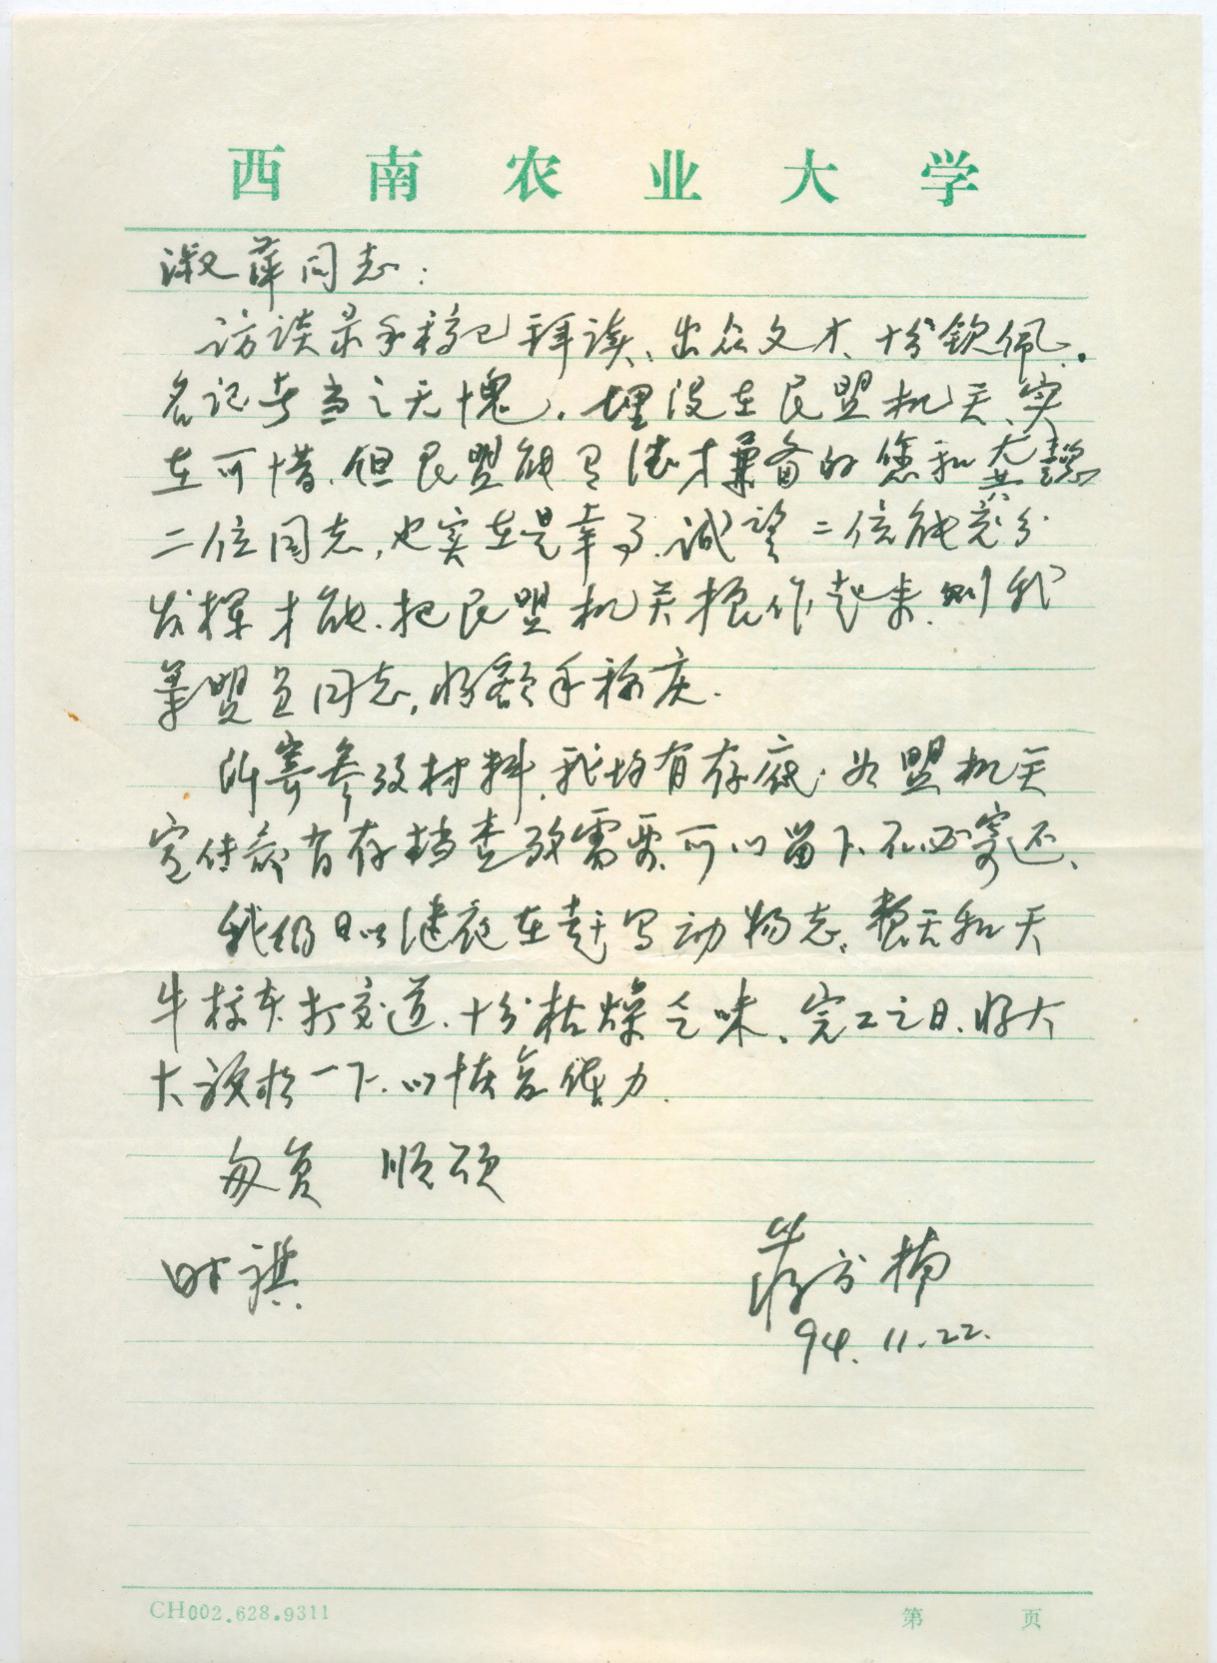 西南农业大学
淑萍同志：
访谈录手稿已拜读、出众文才、十分钦佩.
名记者当之无愧. 埋没在民盟机关、实
在可惜. 但民盟能有德才兼备的您和
二位同志, 也实在是幸事. 诚望二位能充分
发挥才能. 把民盟机关振作起来. 则我
辈盟员同志, 将额手称庆.
所寄参考材料. 我均有存底. 如盟机关
宣传部有存档查考需要. 可以留下. 不必寄还、
我仍日以继夜在赶写动物志. 整天和天
牛标本打交道. 十分枯燥乏味、完工之日、将大
大放松一下. 以恢复体力.
匆复 顺颂
时祺
蒋书楠
94. 11. 22.
CH002.628.9311
第 页